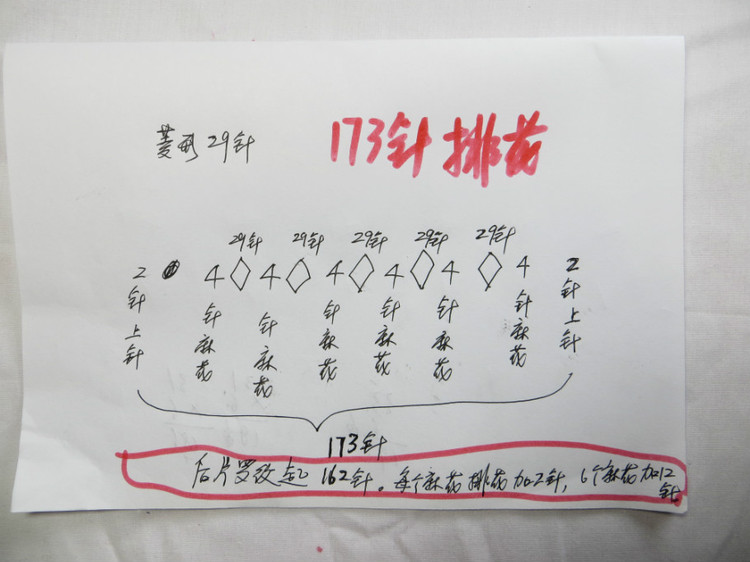 菱形29针
173针排花
29针 29针 29针 29针 29针
2针上针 4针麻花 4针麻花 4针麻花 4针麻花 4针麻花 4针麻花 2针上针
173针
后片罗纹起162针。每个麻花排花加2针,6个麻花加12针